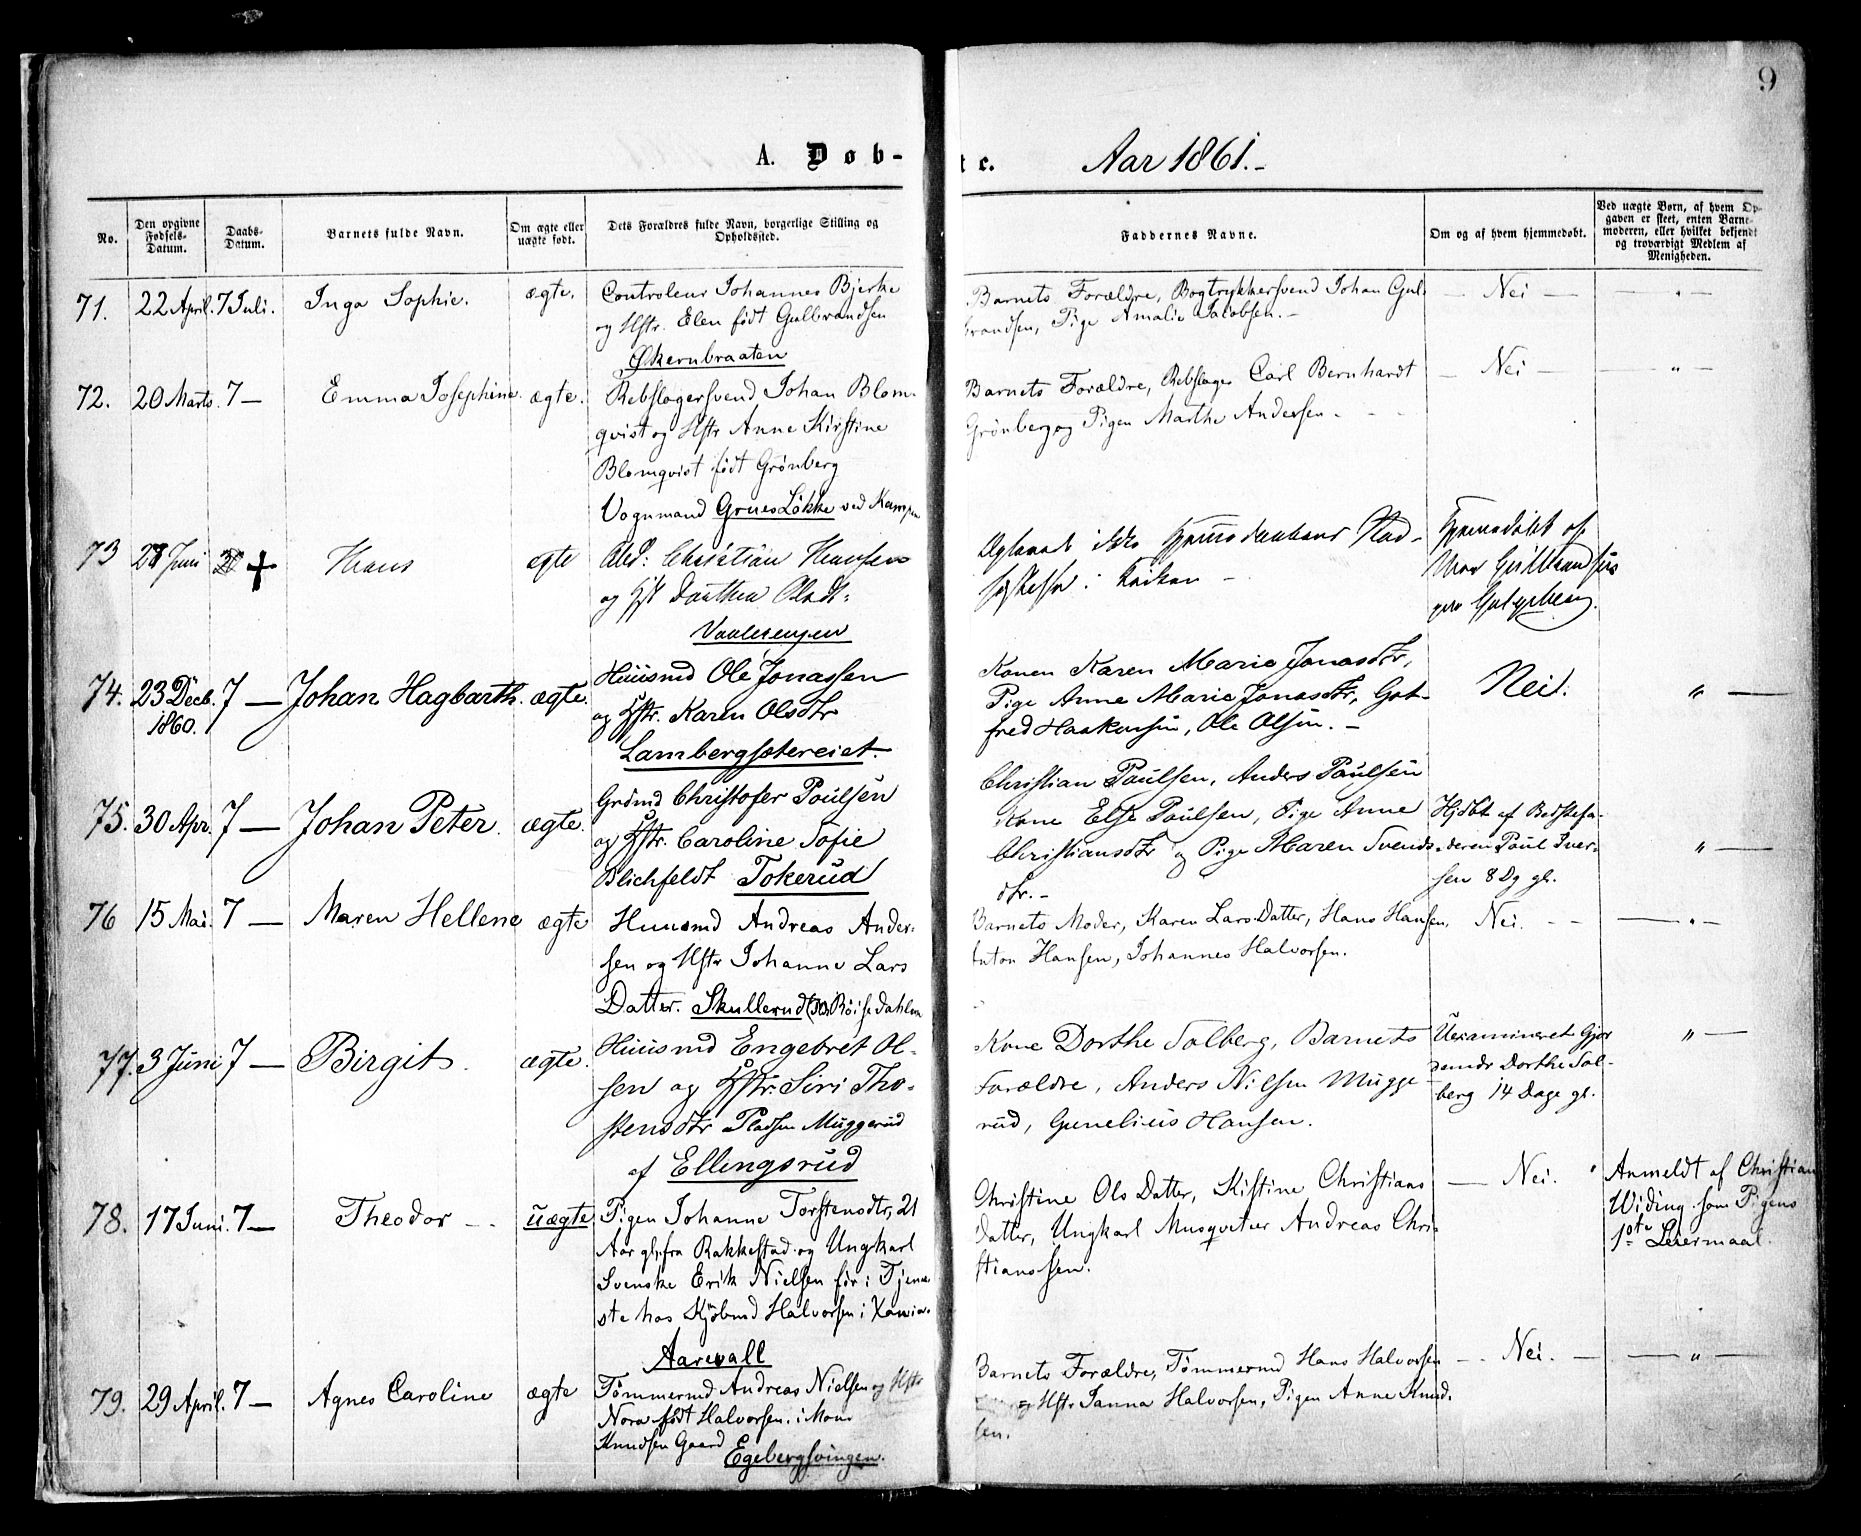 9
A. Døb-
te. Aar 1861.-
No.
Den opgivne Fødsels-Datum.
Daabs-Datum.
Barnets fulde Navn.
Om ægte eller uægte født.
Dets Forældres fulde Navn, borgerlige Stilling og Opholdssted.
Faddernes Navne.
Om og af hvem hjemmedøbt.
Ved uægte Børn, af hvem Opgaven er skeet, enten Barnemoderen, eller hvilket bekjendt og troværdigt Medlem af Menigheden.
71. 22 April. 7 Juli. Inga Sophie. ægte.
Controleur Johannes Bjerke
og Hstr. Elen født Gulbrandsen
Økernbraaten
Barnets Forældre, Bogtrykkersvend Johan Gul
brandsen, Pige Amalie Jacobsen.-
— Nei — — " —
72. 20 Marts. 7 — Emma Josephine. ægte.
Rebslagersvend Johan Blom-
qvist og Hstr Anne Kirstine
Blomqvist født Grønberg
Vognmand Grues Løkke ved Kampen
Barnets Forældre, Rebslager Carl Bernhardt
Grønberg og Pigen Marthe Andersen -
— Nei — — " —
73 28 Juni + Hans ægte
Christian Hansen
og Dorthea Olsdt:
Vaalerengen
Hjemmedøbt af
74. 23 Decb. 1860. 7 — Johan Hagbarth. ægte.
Huusmd Ole Jonassen
og Hstr. Karen Olsdtr
Lambergsætereiet.
Konen Karen Marie Jonasdtr,
Pige Anne Marie Jonasdtr, Got-
fred Haakensen, Ole Olsen. -
Nei. " —
75. 30 Apr. 7 — Johan Peter. ægte.
Grdmd Christofer Poulsen
og Hstr. Caroline Sofie
Blichfeldt Tokerud
Christian Poulsen, Anders Poulsen
Kone Else Poulsen, Pige Anne
Christiansdtr og Pige Maren Svends-
dtr. -
Hjdbt af Bedstefa-
deren Poul Iver-
sen 8 Dg gl.
" —
76 15 Mai. 7 — Maren Hellene ægte
Huusmd Andreas Ander-
sen og Hstr Johanne Lars
Datter. Skullerud
Barnets Moder, Karen Lars Datter, Hans Hansen,
Anton Hansen, Johannes Halvorsen.
Nei. — " —
77. 3 Juni 7 — Birgit. ægte.
Huusmd Engebret Ol-
sen og Hstr. Siri Tho-
stensdtr Pladsen Muggerud
af Ellingsrud
Kone Dorthe Solberg, Barnets
Forældre, Anders Nilsen Mugge
rud, Gunelius Hansen.
Uexamineret Gjor
demdr Dorthe Sol-
berg 14 Dage gl.
" —
78. 17 Juni. 7 — Theodor - uægte
Pigen Johanne Torstensdtr, 21
Aar gl. fra Rakkestad og Ungkarl
Svenske Erik Nielsen før i Tjene
ste hos Kjøbmd Halvorsen i Xania.
Aarvall
Christine Ols Datter, Kistine Christians
Datter, Ungkarl Musqveteer Andreas Chri
stianssen.
— Nei.
Anmeldt af Christian
Widing som Pigens
1ste Leiermaal.
79. 29 April. 7 — Agnes Caroline ægte
Tømmermd Andreas Nielsen og Hstr
Nora født Halvorsen. i Mons
Knudsen Gaard Egebergsvingen.
Barnets Forældre, Tømmermd Hans Halvorsen
og Hstr Janna Halvorsen, Pigen Anne Knud
sen.
— Nei. — — " —